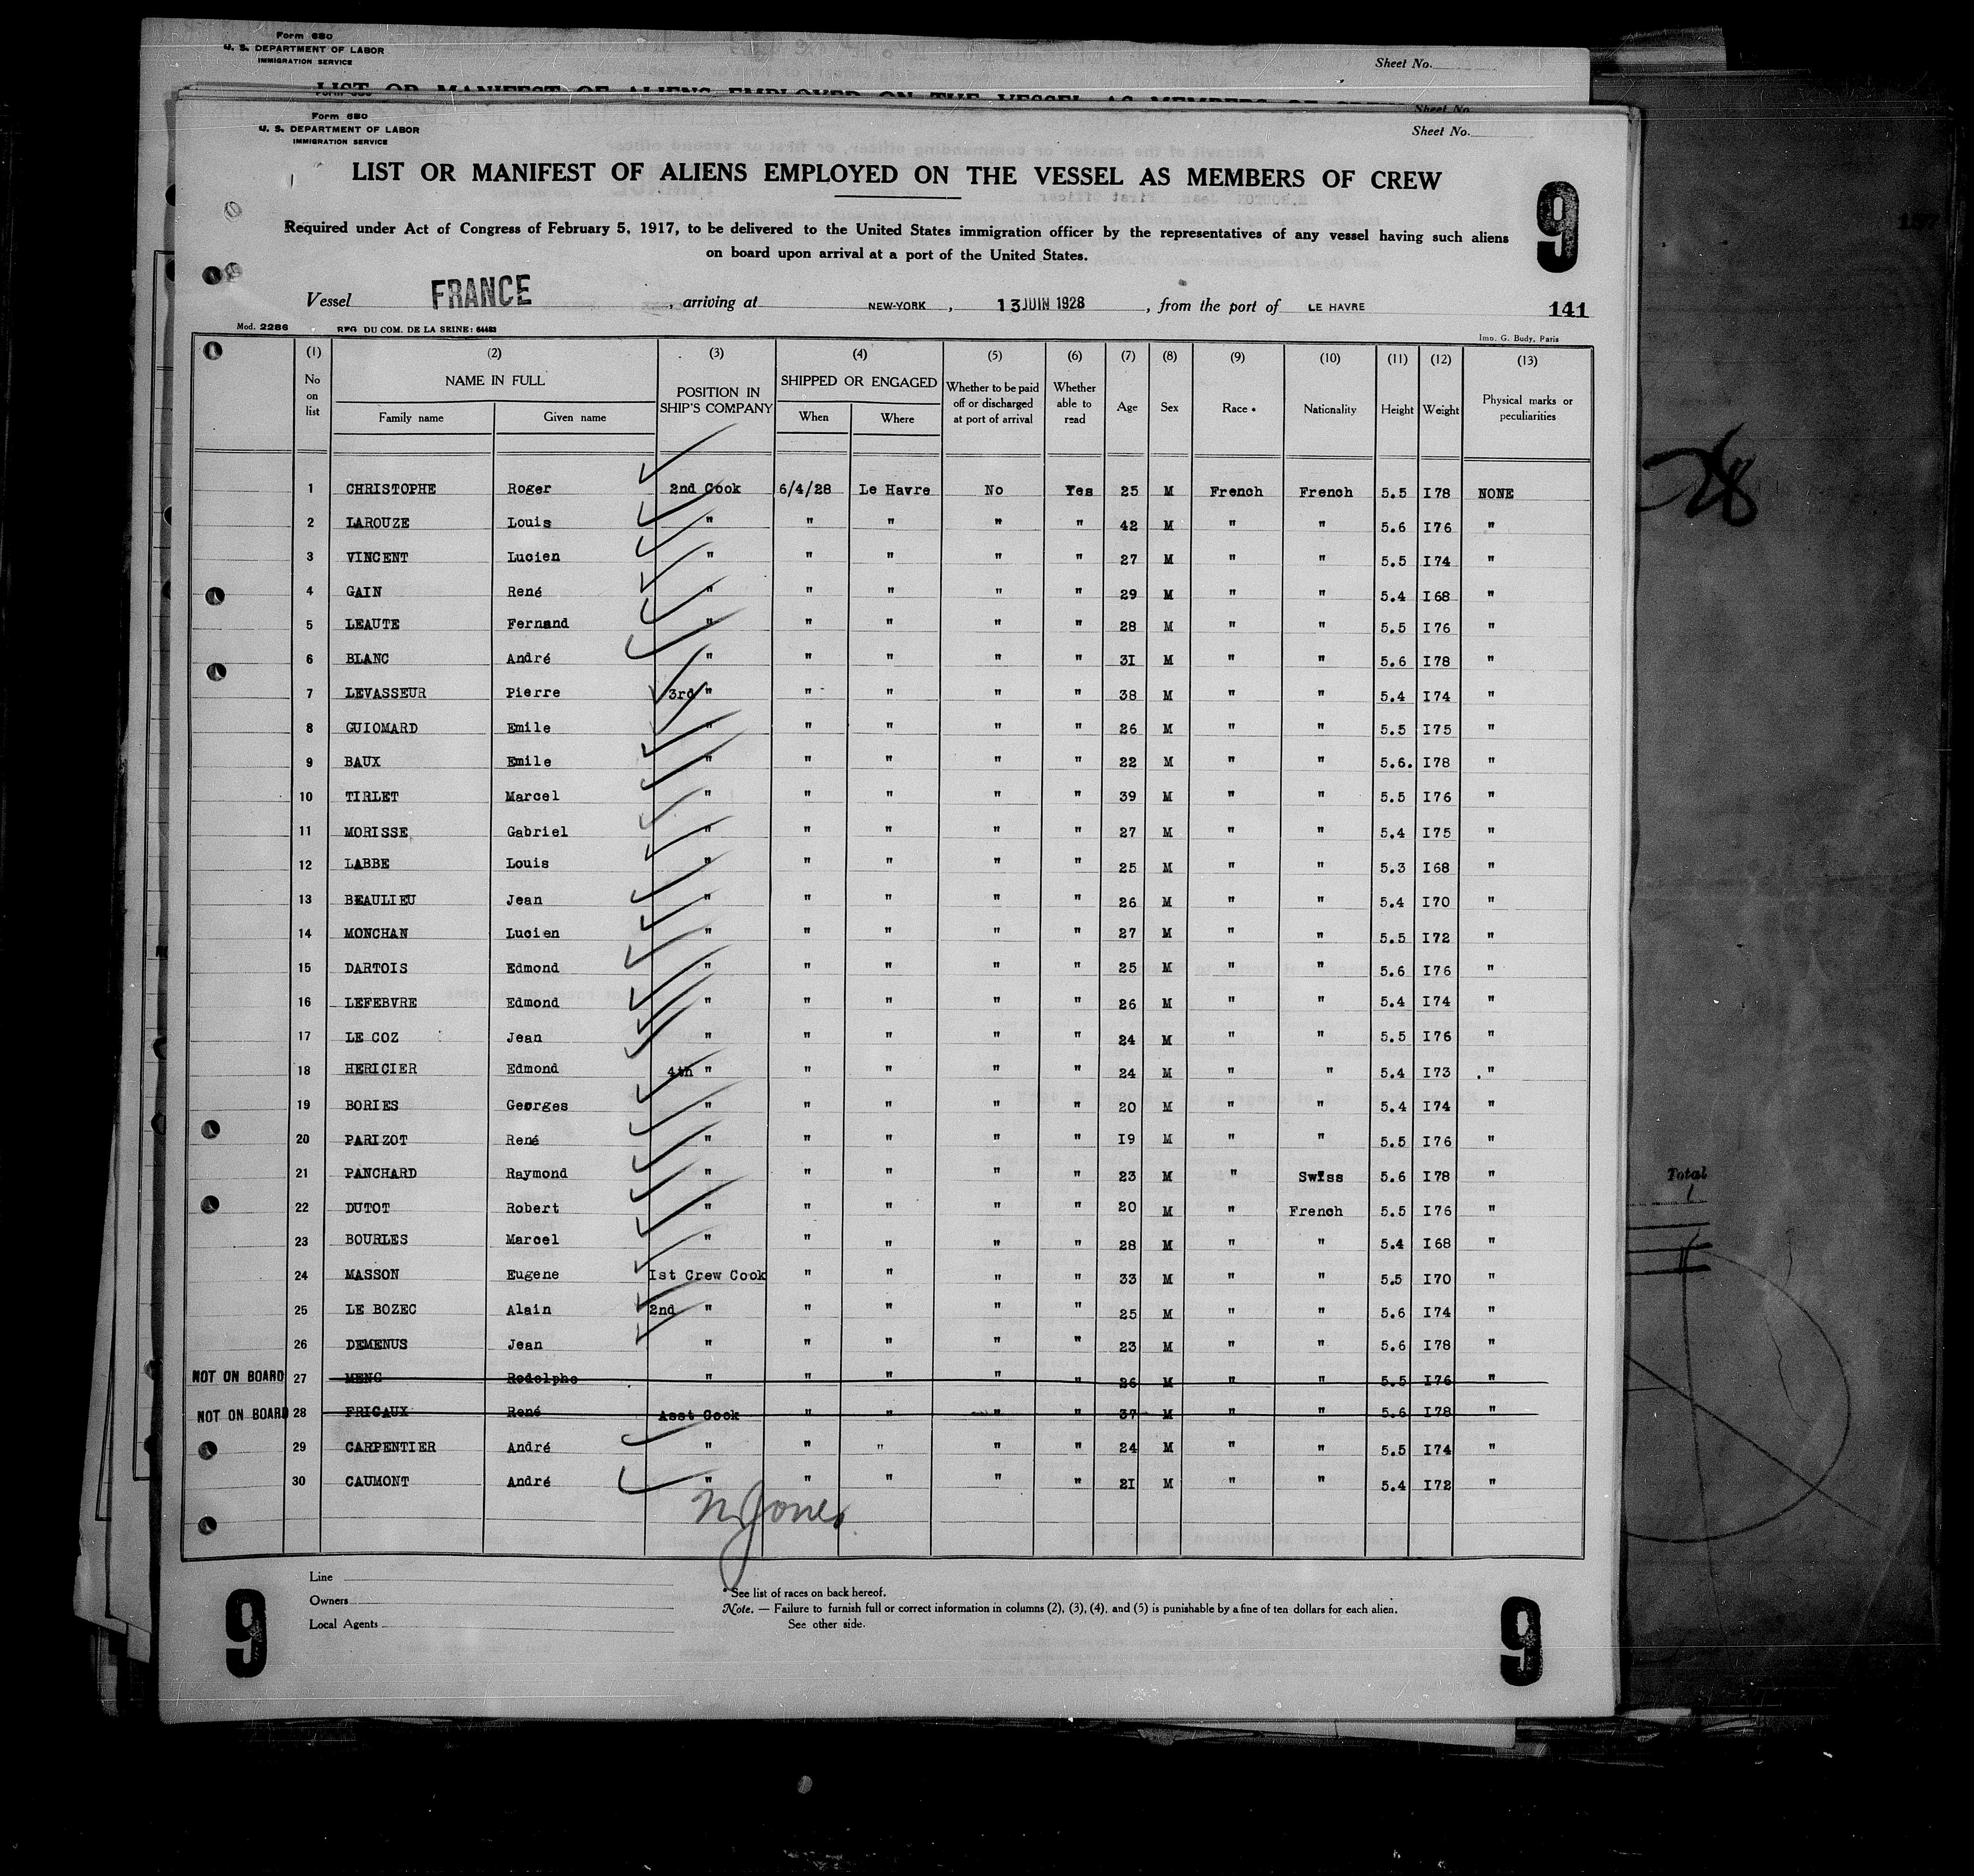 Form 680
U. S. DEPARTMENT OF LABOR
IMMIGRATION SERVICE
Sheet No.
LIST OR MANIFEST OF ALIENS EMPLOYED ON THE VESSEL AS MEMBERS OF CREW
Sheet No.
Form 680
U. S. DEPARTMENT OF LABOR
IMMIGRATION SERVICE
Sheet No.
LIST OR MANIFEST OF ALIENS EMPLOYED ON THE VESSEL AS MEMBERS OF CREW
9
Required under Act of Congress of February 5, 1917, to be delivered to the United States immigration officer by the representatives of any vessel having such aliens
on board upon arrival at a port of the United States.
Vessel FRANCE , arriving at NEW-YORK , 13 JUIN 1928 , from the port of LE HAVRE 141
Mod. 2286 REG. DU COM. DE LA SEINE: 64483 Imp. G. Budy, Paris
(1) (2) (3) (4) (5) (6) (7) (8) (9) (10) (11) (12) (13)
No on list NAME IN FULL Family name Given name POSITION IN SHIP'S COMPANY SHIPPED OR ENGAGED When Where Whether to be paid off or discharged at port of arrival Whether able to read Age Sex Race * Nationality Height Weight Physical marks or peculiarities
1 CHRISTOPHE Roger 2nd Cook 6/4/28 Le Havre No Yes 25 M French French 5.5 I78 NONE
2 LAROUZE Louis " " " " " 42 M " " 5.6 I76 "
3 VINCENT Lucien " " " " " 27 M " " 5.5 I74 "
4 GAIN René " " " " " 29 M " " 5.4 I68 "
5 LEAUTE Fernand " " " " " 28 M " " 5.5 I76 "
6 BLANC André " " " " " 3I M " " 5.6 I78 "
7 LEVASSEUR Pierre 3rd " " " " " 38 M " " 5.4 I74 "
8 GUIOMARD Emile " " " " " 26 M " " 5.5 I75 "
9 BAUX Emile " " " " " 22 M " " 5.6. I78 "
10 TIRLET Marcel " " " " " 39 M " " 5.5 I76 "
11 MORISSE Gabriel " " " " " 27 M " " 5.4 I75 "
12 LABBE Louis " " " " " 25 M " " 5.3 I68 "
13 BEAULIEU Jean " " " " " 26 M " " 5.4 I70 "
14 MONCHAN Lucien " " " " " 27 M " " 5.5 I72 "
15 DARTOIS Edmond " " " " " 25 M " " 5.6 I76 "
16 LEFEBVRE Edmond " " " " " 26 M " " 5.4 I74 "
17 LE COZ Jean " " " " " 24 M " " 5.5 I76 "
18 HERICIER Edmond 4th " " " " " 24 M " " 5.4 I73 "
19 BORIES Georges " " " " " 20 M " " 5.4 I74 "
20 PARIZOT René " " " " " I9 M " " 5.5 I76 "
21 PANCHARD Raymond " " " " " 23 M " Swiss 5.6 I78 "
22 DUTOT Robert " " " " " 20 M " French 5.5 I76 "
23 BOURLES Marcel " " " " " 28 M " " 5.4 I68 "
24 MASSON Eugene Ist Crew Cook " " " " 33 M " " 5.5 I70 "
25 LE BOZEC Alain 2nd " " " " " 25 M " " 5.6 I74 "
26 DEMENUS Jean " " " " " 23 M " " 5.6 I78 "
NOT ON BOARD 27 MENG Rodolphe " " " " " 26 M " " 5.5 I76 "
NOT ON BOARD 28 FRICAUX René Asst Cook " " " " 37 M " " 5.6 I78 "
29 CARPENTIER André " " " " " 24 M " " 5.5 I74 "
30 CAUMONT André " " " " " 2I M " " 5.4 I72 "
Jones
Line
Owners
Local Agents
* See list of races on back hereof.
Note. — Failure to furnish full or correct information in columns (2), (3), (4), and (5) is punishable by a fine of ten dollars for each alien.
See other side.
9
9
Total